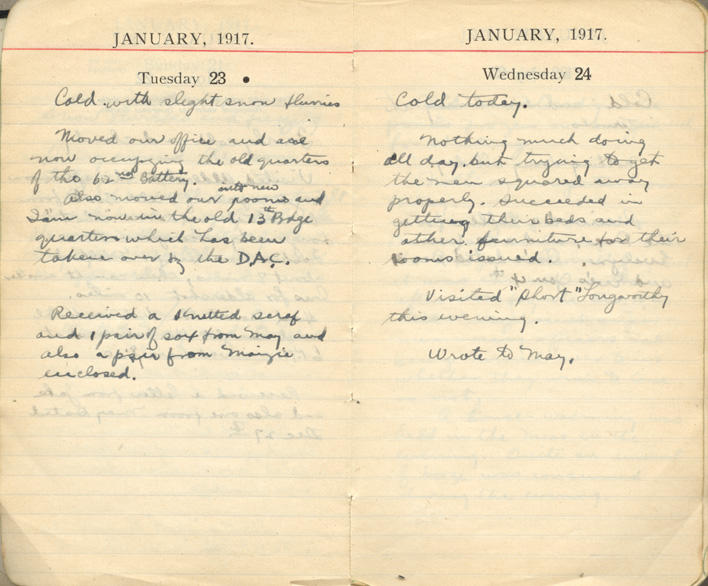 JANUARY, 1917.
Tuesday 23
Cold with slight snow flurries
Moved our office and are
now occupying the old quarters
of the 62nd Battery.
Also moved our rooms and
into new
I am now in the old 13th Bdge
quarters which has been
taken over by the D.A.C.
Received a knitted scarf
and 1 pair of sox from May and
also a pair from Maizie
enclosed.
JANUARY, 1917.
Wednesday 24
Cold today.
Nothing much doing
all day but trying to get
the men squared away
properly. Succeeded in
getting their beds and
other furniture for their
rooms issued.
Visited "Short" Longworthy
this evening.
Wrote to May.